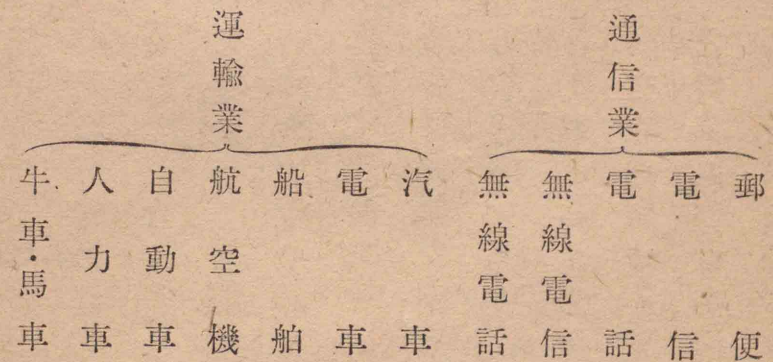 通信業
郵便
電信
電話
無線電信
無線電話
運輸業
汽車
電車
船舶
航空機
自動車
人力車
牛車・馬車